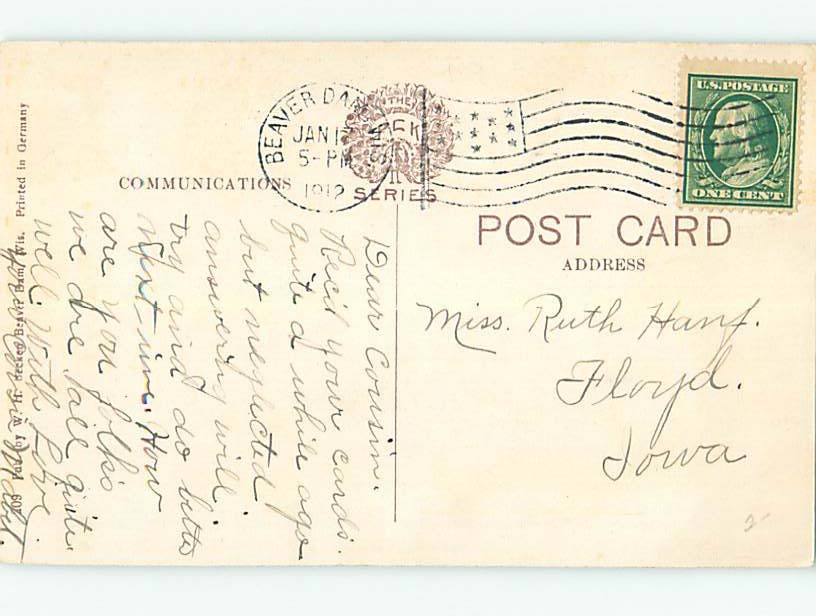 BEAVER DAM
JAN 1
5-PM
1912
WIS.
THE
SERIES
U.S. POSTAGE
ONE CENT
COMMUNICATIONS
POST CARD
ADDRESS
Miss. Ruth Hanf.
Floyd.
Iowa
Dear Cousin.
Rec'd your cards.
quite a while ago
but neglected
answering will
try and do better
next time. How
are you folks
we are all quite
well. With Love.
your Cousin Mabel.
209 Pub. by W. H. Becker, Beaver Dam, Wis. Printed in Germany
2-